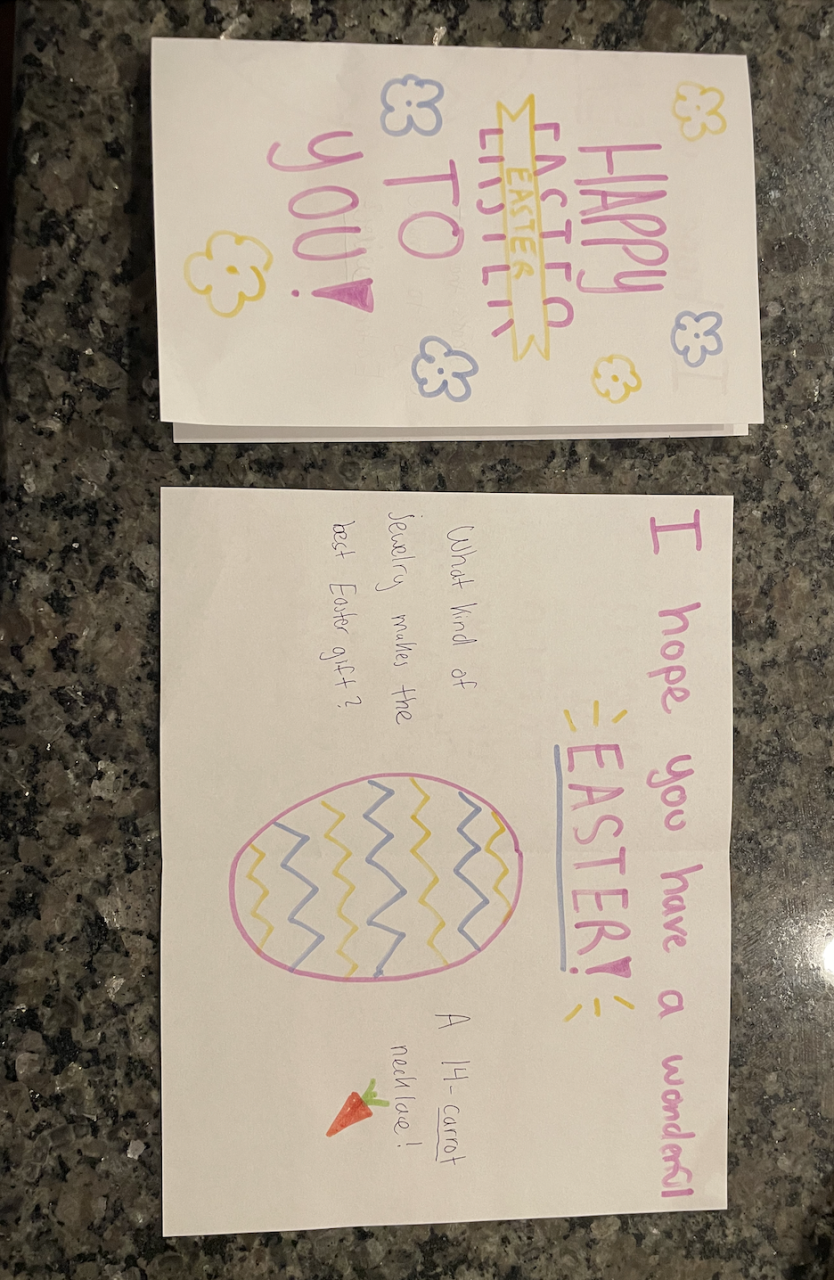 HAPPY
EASTER
EASTER
TO
YOU!
I hope you have a wonderful
EASTER!
What kind of
jewelry makes the
best Easter gift?
A 14-carrot
necklace!